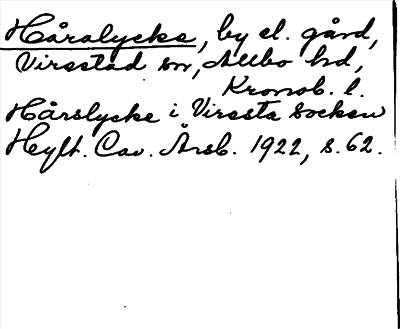 Håralycke, by el. gård,
Virestad sn, Allbo hd,
Kronob. l.
Hårslycke i Viresta Socken
Heylt. Cav. Årsb. 1922, s. 62.